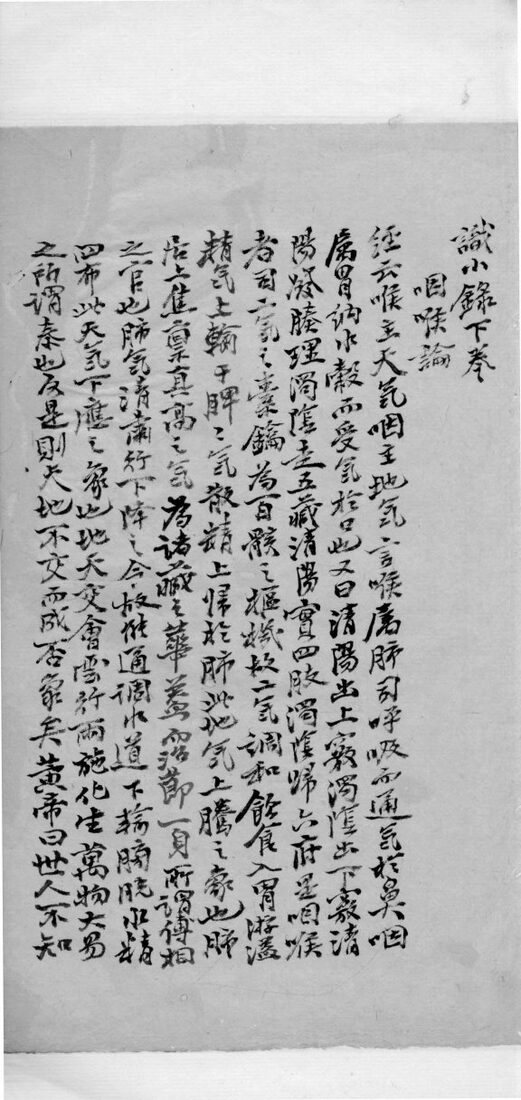 識小錄下卷
咽喉論
經云喉主天氣咽主地氣言喉屬肺司呼吸而通氣於鼻咽
屬胃納水穀而受氣於口也又曰清陽出上竅濁陰出下竅清
陽發腠理濁陰走五藏清陽實四肢濁陰歸六府是咽喉
者司二氣之橐鑰為百骸之樞機故二氣調和飲食入胃游溢
精气上輸于脾之气散精上歸於肺此地气上騰之象也肺
居上焦稟真高之气為諸藏之華蓋治節一身所謂傅相
之官也肺气清肅行下降之令故能通調水道下輸膀胱水精
四布此天气下應之象也地天交會雲行雨施化生萬物大易
之所謂泰也反是則天地不交而成否象矣黃帝曰世人不知